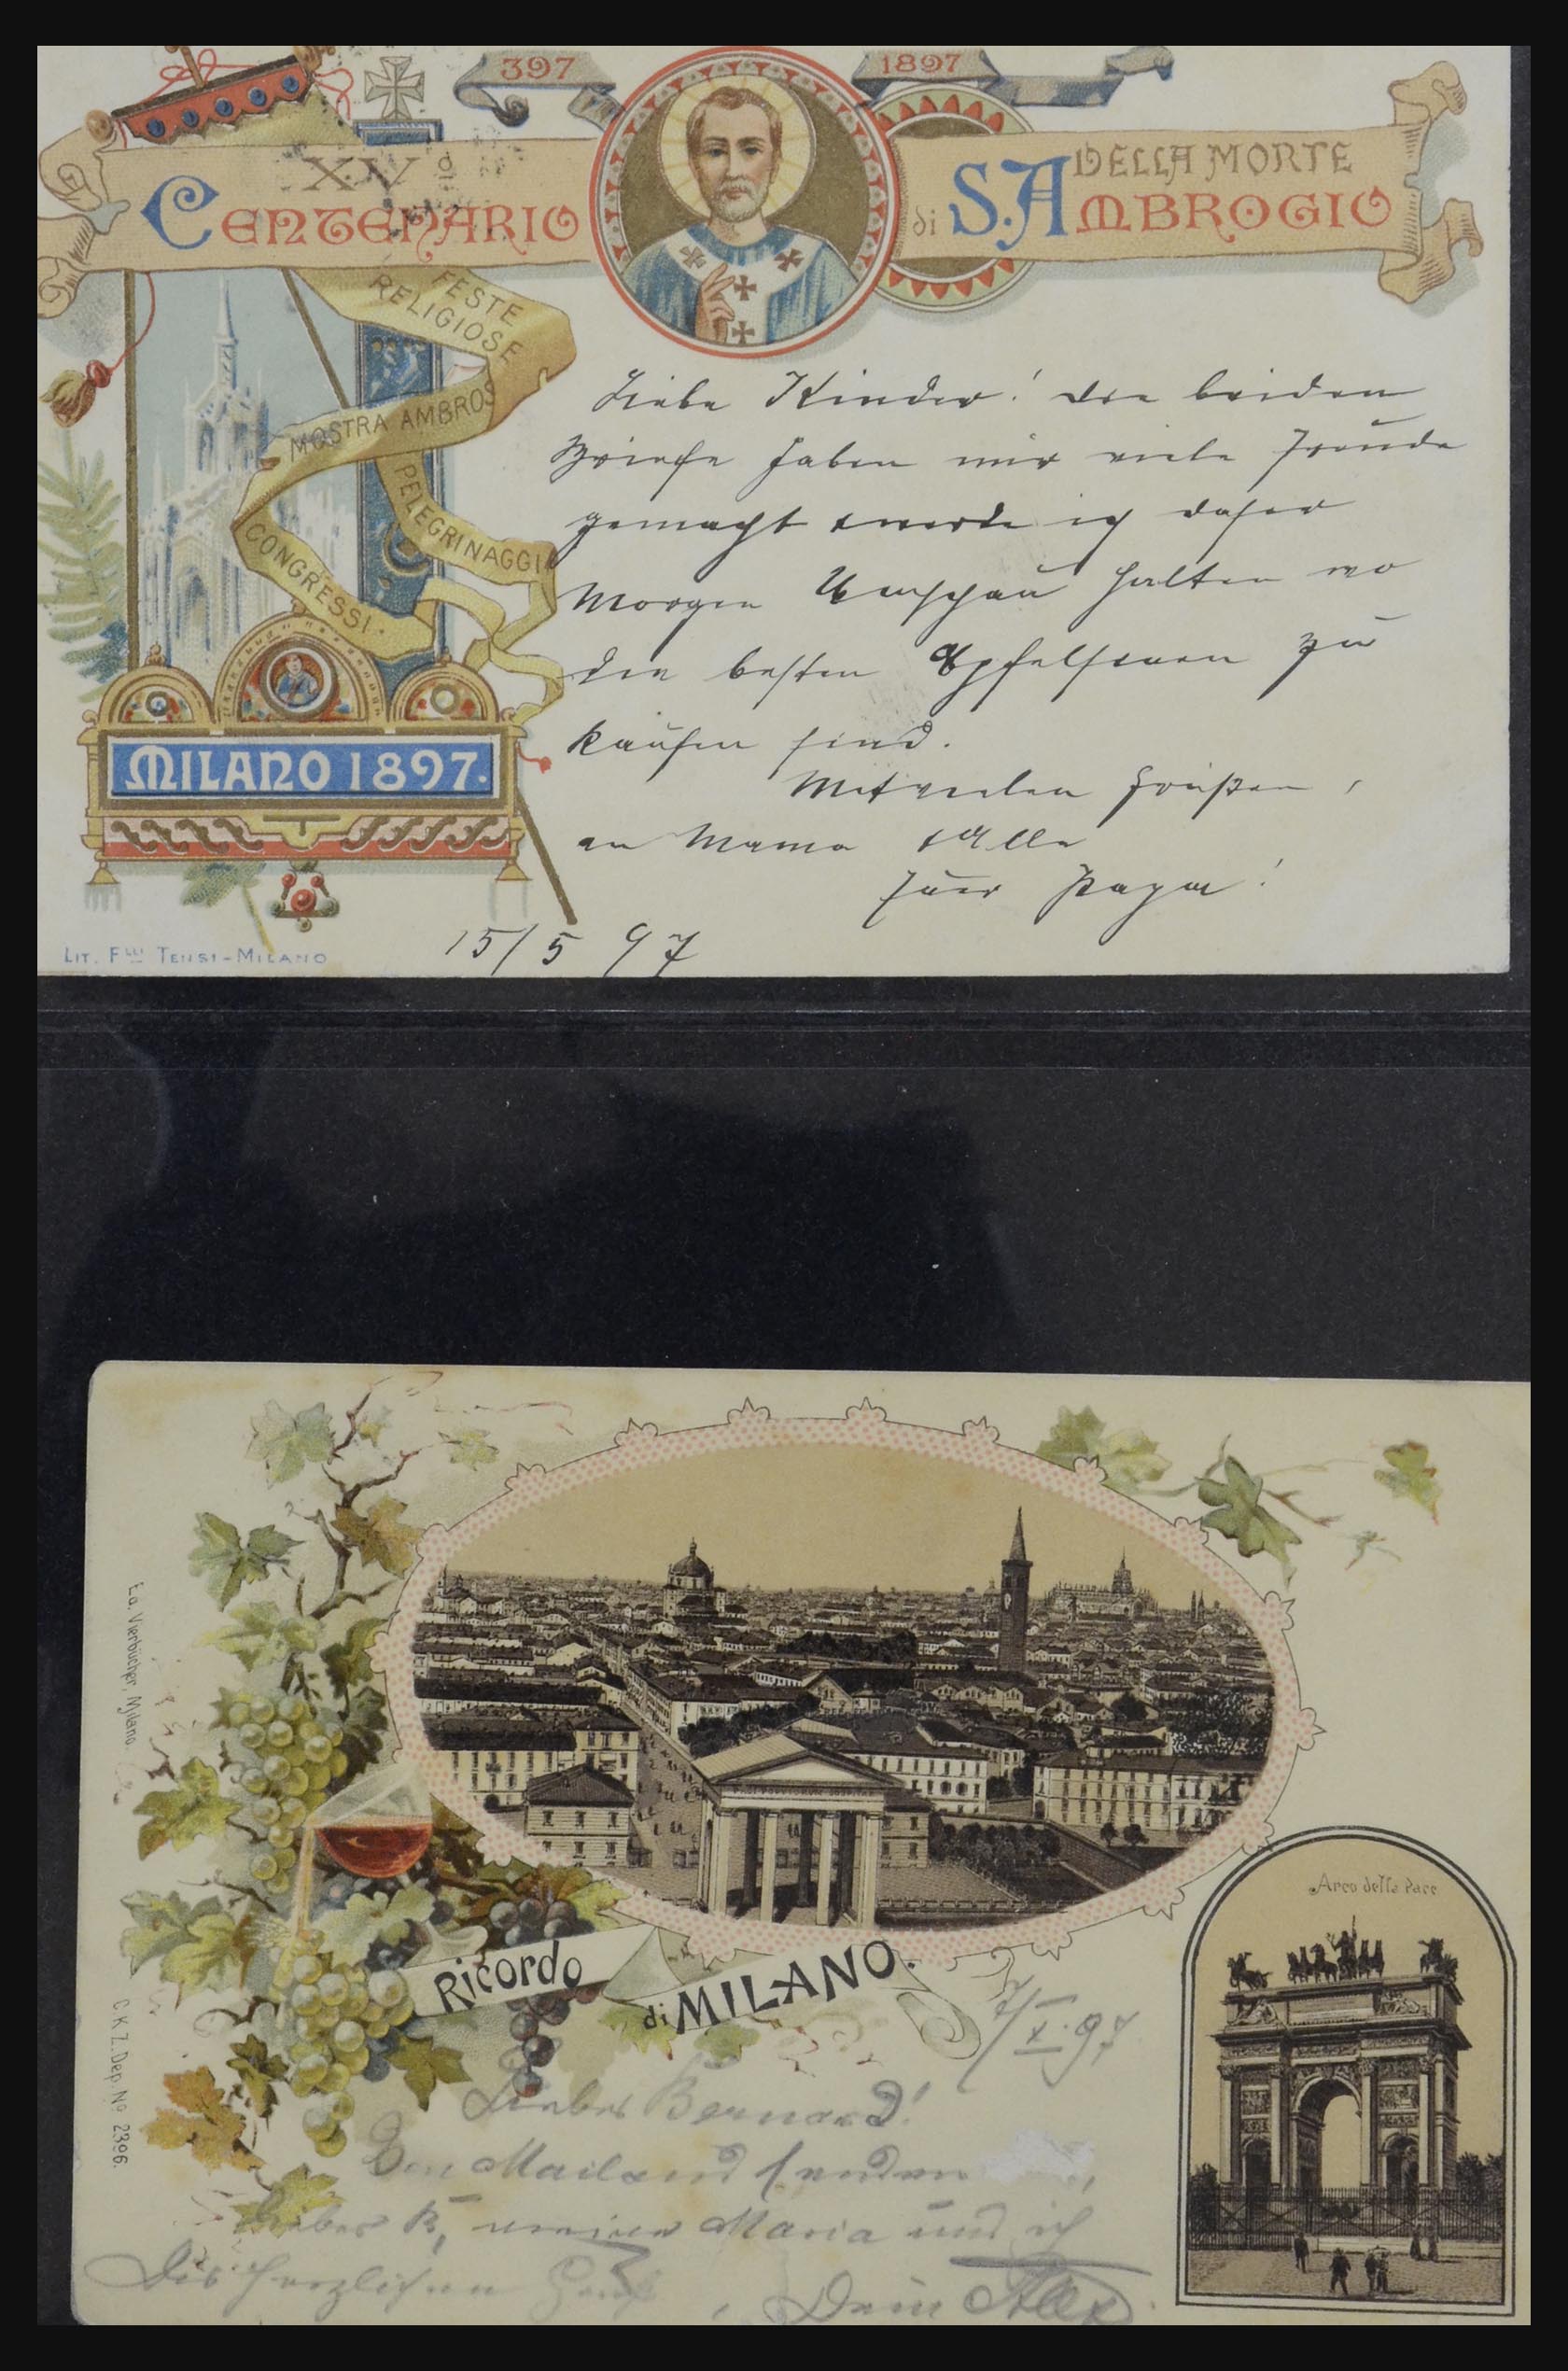 397
1897
XIVº
CENTENARIO
DELLA MORTE
di S. AMBROGIO
FESTE
RELIGIOSE
MOSTRA AMBROS
PELEGRINAGGI
CONGRESSI
MILANO 1897.
Liebe Kinder! die beiden
Briefe haben mir viele Freude
gemacht & werde ich daher
Morgen Umschau halten wo
die besten Apfelsinen zu
kaufen sind.
Mit vielen Grüßen,
an Mama & Alle
Euer Papa!
15/5 97
LIT. FLLI TENSI-MILANO
Ed. Vierbücher, Milano.
C. K. Z. Dep. Nº 2396.
Arco della Pace
Ricordo
di MILANO.
7/X. 97
Lieber Bernard!
Von Mailand senden
lieber B, meine Maria und ich
Dir herzlichen
Dein Alex